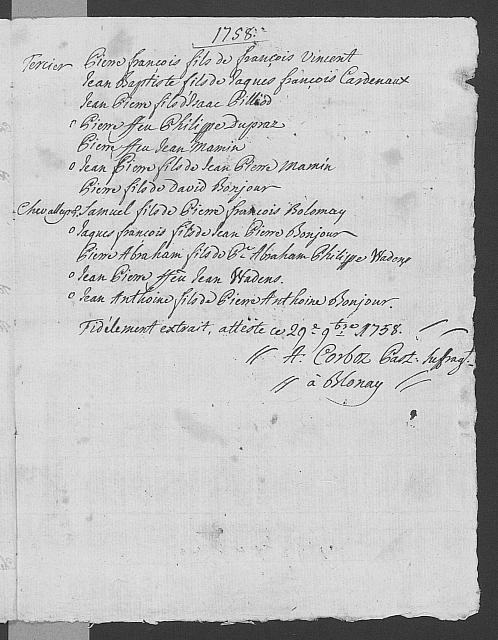 1758.
Tercier Pierre francois fils de françois Vincent
Jean Baptiste fils de Jaques françois Cardenaux
Jean Pierre fils d'Isaac Pilliod
Pierre ffeu Philippe Dupraz
Pierre ffeu Jean Mamin
o Jean Pierre fils de Jean Pierre Mamin
Pierre fils de David Bonjour
Samuel fils de Pierre françois Bolomay
o Jaques francois fils de Jean Pierre Bonjour
Pierre Abraham fils de Pre Abraham Philippe Wadens
o Jean Pierre ffeu Jean Wadens.
o Jean Anthoine fils de Pierre Anthoine Bonjour.
Fidèlement extrait, atteste ce 29e 9bre 1758.
A. Corboz Past. Suffragt.
à Blonay